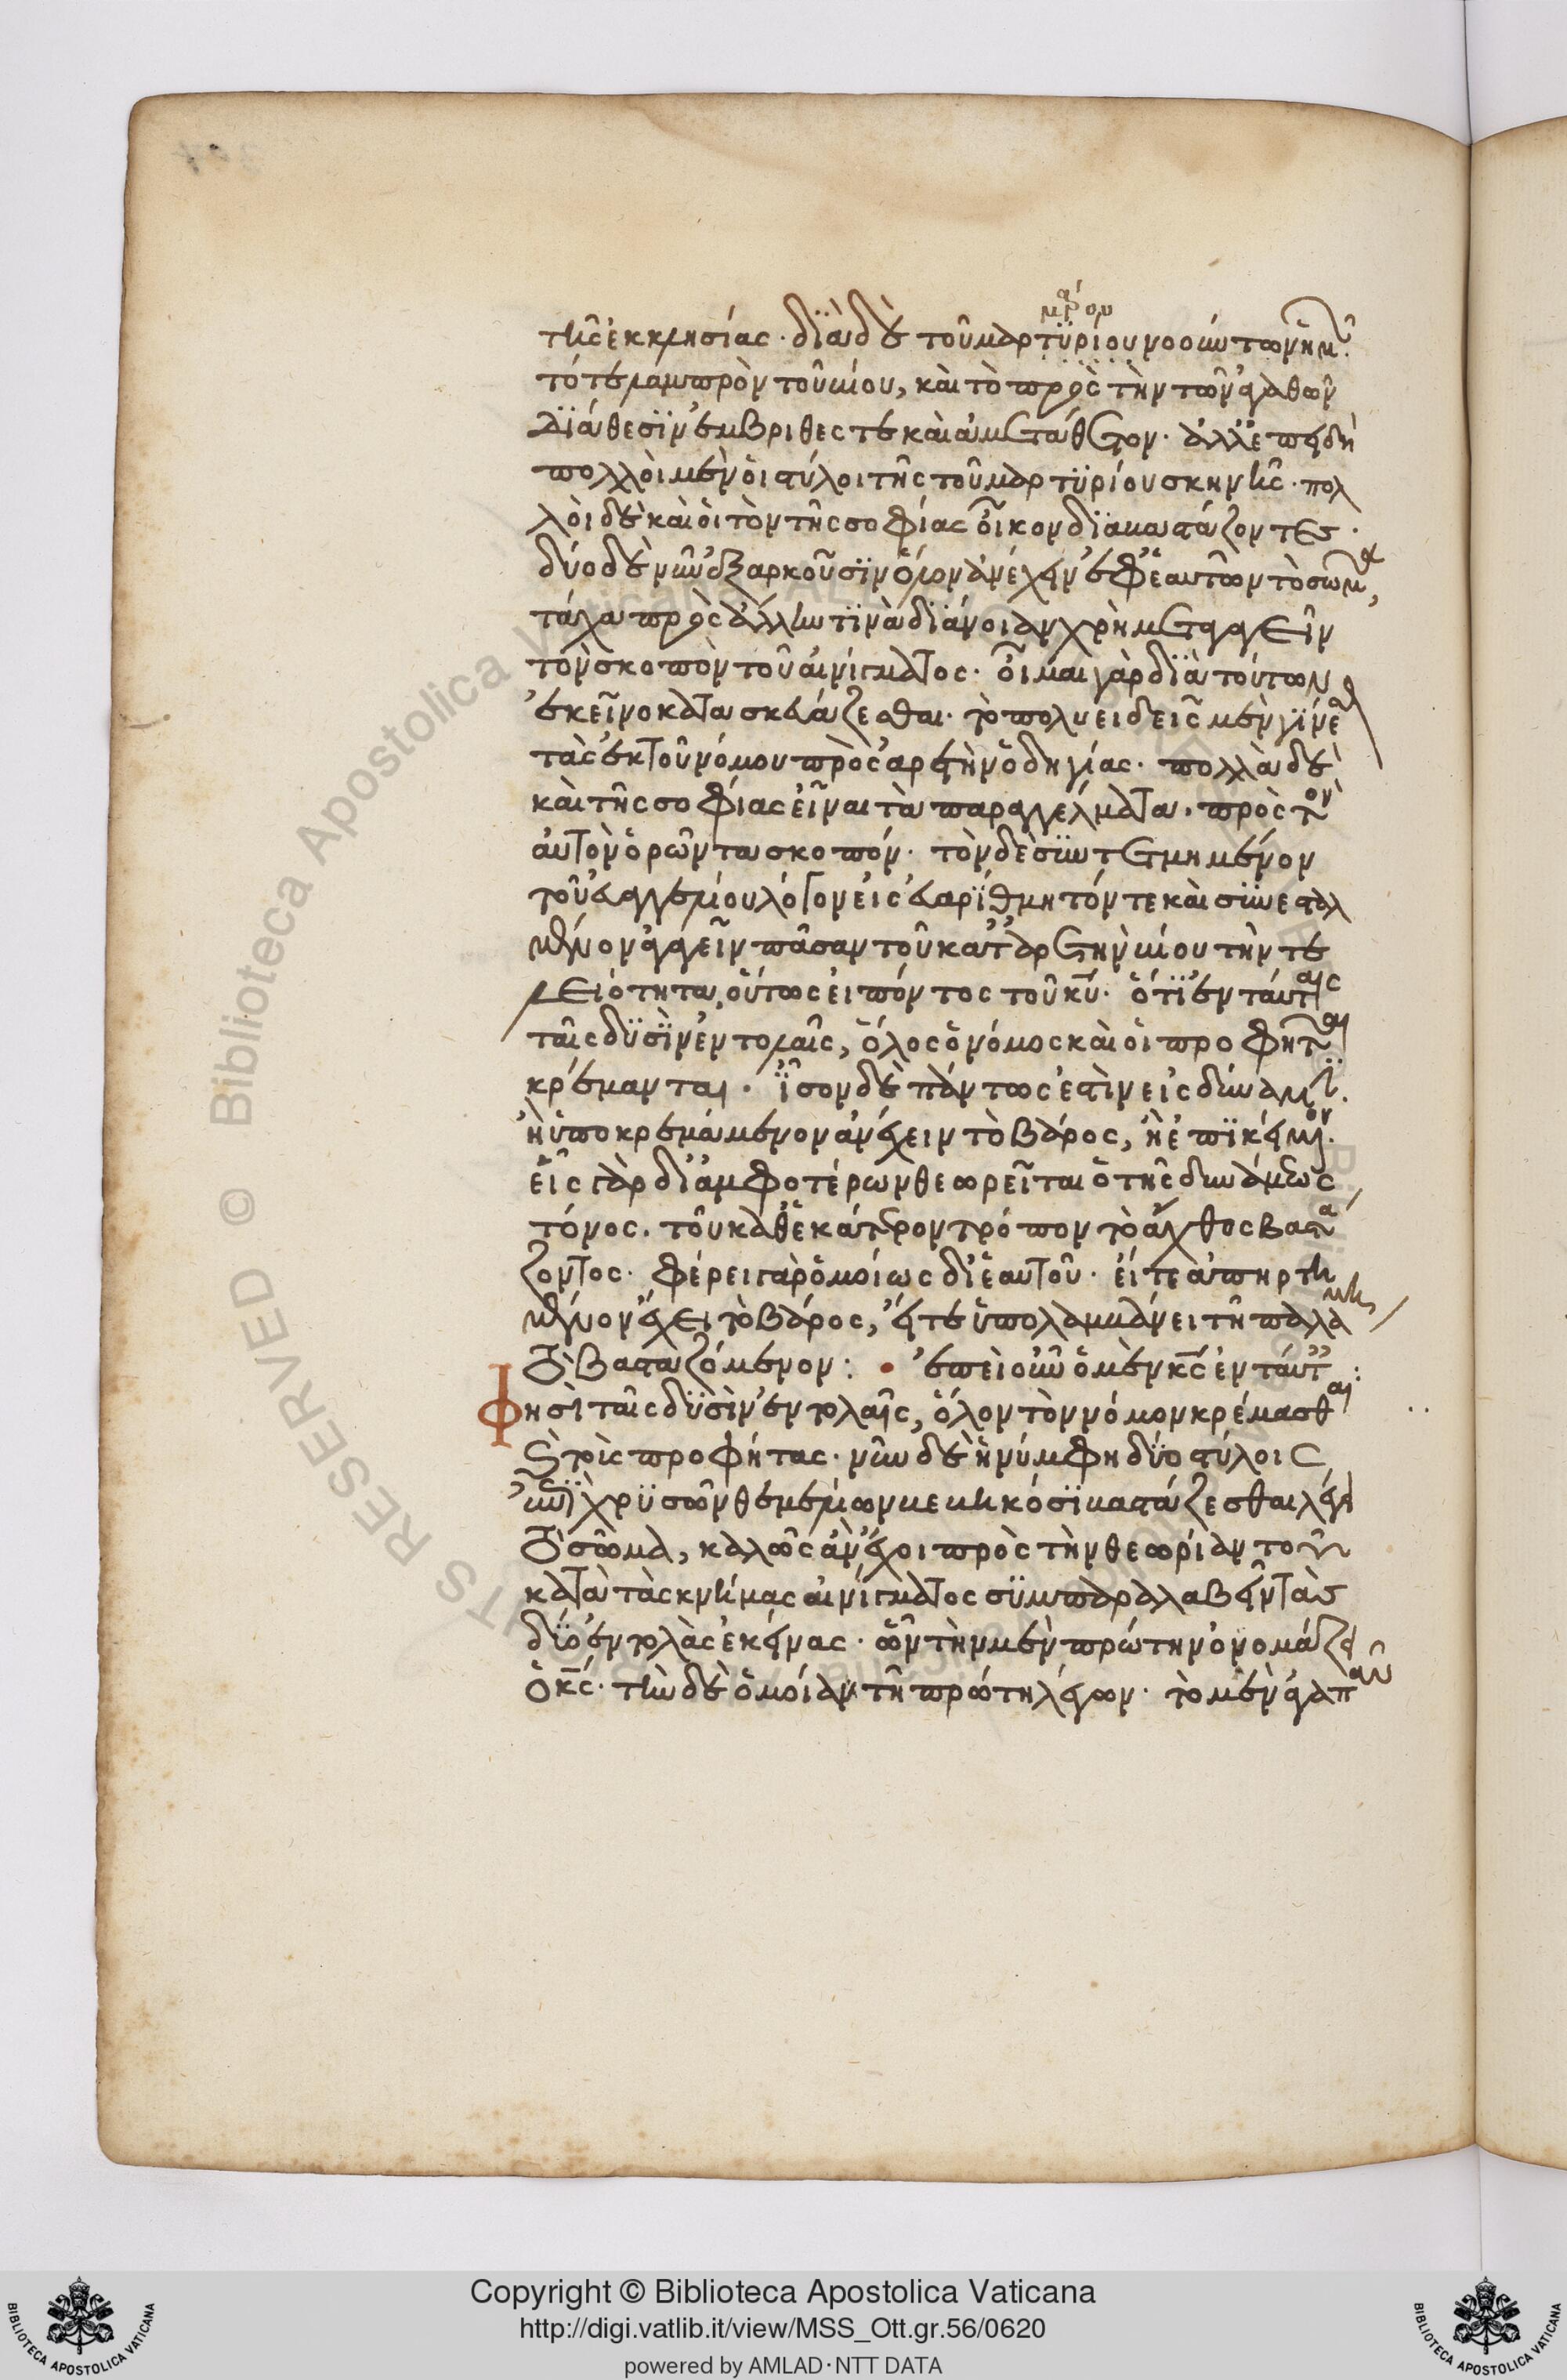 μαρ ου
τῆς ἐκκλησίας · διὰ δὲ τοῦ μαρτυρίου νοούντων ἡμῶν
τό τε λαμπρὸν τοῦ βίου, καὶ τὸ πρὸς τὴν τῶν ἀγαθῶν
διάθεσιν ἐμβριθές τε καὶ ἀμετάθετον · ἀλλ' ἐπειδὴ
πολλοὶ μὲν οἱ στύλοι τῆς τοῦ μαρτυρίου σκηνῆς · πολ
λοὶ δὲ καὶ οἱ τὸν τῆς σοφίας οἶκον διαβαστάζοντες ·
δύο δὲ νῦν ἐξαρκοῦσιν ὅλον ἀνέχειν ἐφ' ἑαυτῶν τὸ σῶμα,
τάχα πρὸς ἄλλην τινὰ διάνοιαν χρὴ μεταγαγεῖν
τὸν σκοπὸν τοῦ αἰνίγματος · οἶμαι γὰρ διὰ τούτων
ἐκεῖνο κατασκευάζεσθαι · τὸ πολυειδεῖς μὲν γίνεσθαι
τὰς ἐκ τοῦ νόμου πρὸς ἀρετὴν ὁδηγίας · πολλὰ δὲ
καὶ τῆς σοφίας εἶναι τὰ παραγγέλματα · πρὸς τὸν
αὐτὸν ὁρῶντα σκοπόν · τὸν δὲ συντετμημένον
τοῦ εὐαγγελίου λόγον εἰς εὐαρίθμητόν τε καὶ συνεσταλ
μένον ἀγαγεῖν πᾶσαν τοῦ κατ' ἀρετὴν βίου τὴν τε
λειότητα, οὕτως εἰπόντος τοῦ κυ · ὅτι ἐν ταύταις
ταῖς δυσὶν ἐντολαῖς, ὅλος ὁ νόμος καὶ οἱ προφῆται
κρέμανται · ἴσον δὲ πάντως ἐστὶν εἰς δύναμιν ·
ἢ ὑποκρεμάμενον ἀνέχειν τὸ βάρος, ἢ ἐπικείμενον ·
εἷς γὰρ δι' ἀμφοτέρων θεωρεῖται ὁ τῆς δυνάμεως
τόνος · τοῦ καθ' ἑκάτερον τρόπον τὸ ἄχθος βαστά
ζοντος · φέρει γὰρ ὁμοίως δι' ἑαυτοῦ · εἴτε ἀπηρτη
μένον ἔχει τὸ βάρος, εἴτε ὑπολαμβάνει τῇ παλάμῃ
τὸ βασταζόμενον : · ἐπεὶ οὖν ὁ μὲν κς ἐν ταύταις :
φησὶ ταῖς δυσὶν ἐντολαῖς, ὅλον τὸν νόμον κρέμασθαι
καὶ τοὺς προφήτας · νῦν δὲ ἡ νύμφη δύο στύλοις
ἐπὶ χρυσῶν θεμελίων βεβηκόσι βαστάζεσθαι λέγει
τὸ σῶμα, καλῶς ἂν ἔχοι πρὸς τὴν θεωρίαν τοῦ
κατὰ τὰς κνήμας αἰνίγματος συμπαραλαβεῖν τὰς
δύο ἐντολὰς ἐκείνας · ὧν τὴν μὲν πρώτην ὀνομάζει
ὁ κς · τὴν δὲ ὁμοίαν τῇ πρώτῃ λέγων · τὸ μὲν ἀγαπᾶν
Copyright © Biblioteca Apostolica Vaticana
http://digi.vatlib.it/view/MSS_Ott.gr.56/0620
powered by AMLAD·NTT DATA